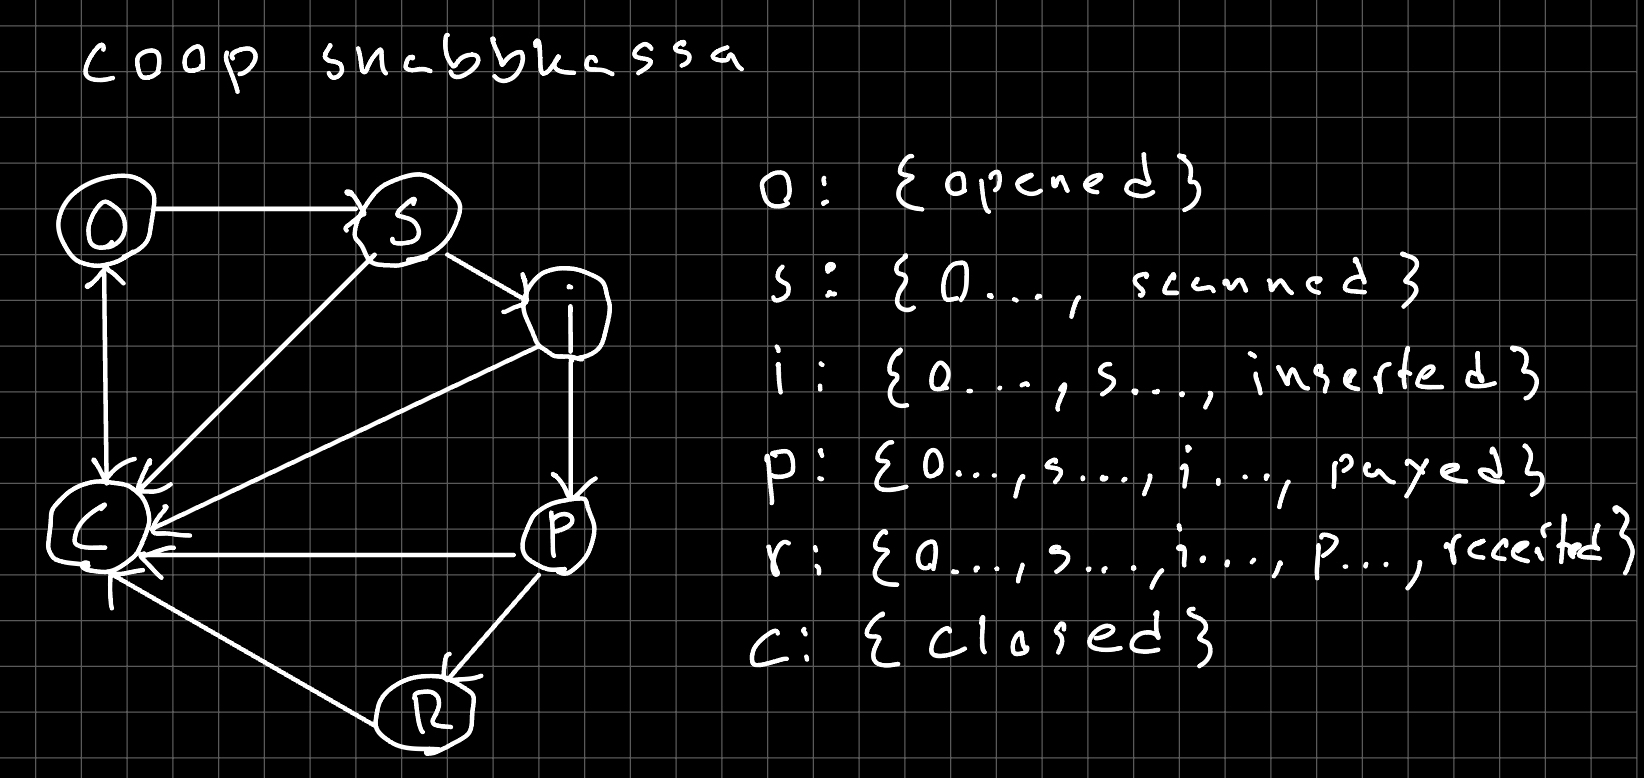 coop snabbkassa
O
S
i
C
P
R
o: {opened}
s: {o..., scanned}
i: {o..., s..., inserted}
p: {o..., s..., i..., payed}
r: {o..., s..., i..., p..., receited}
c: {closed}